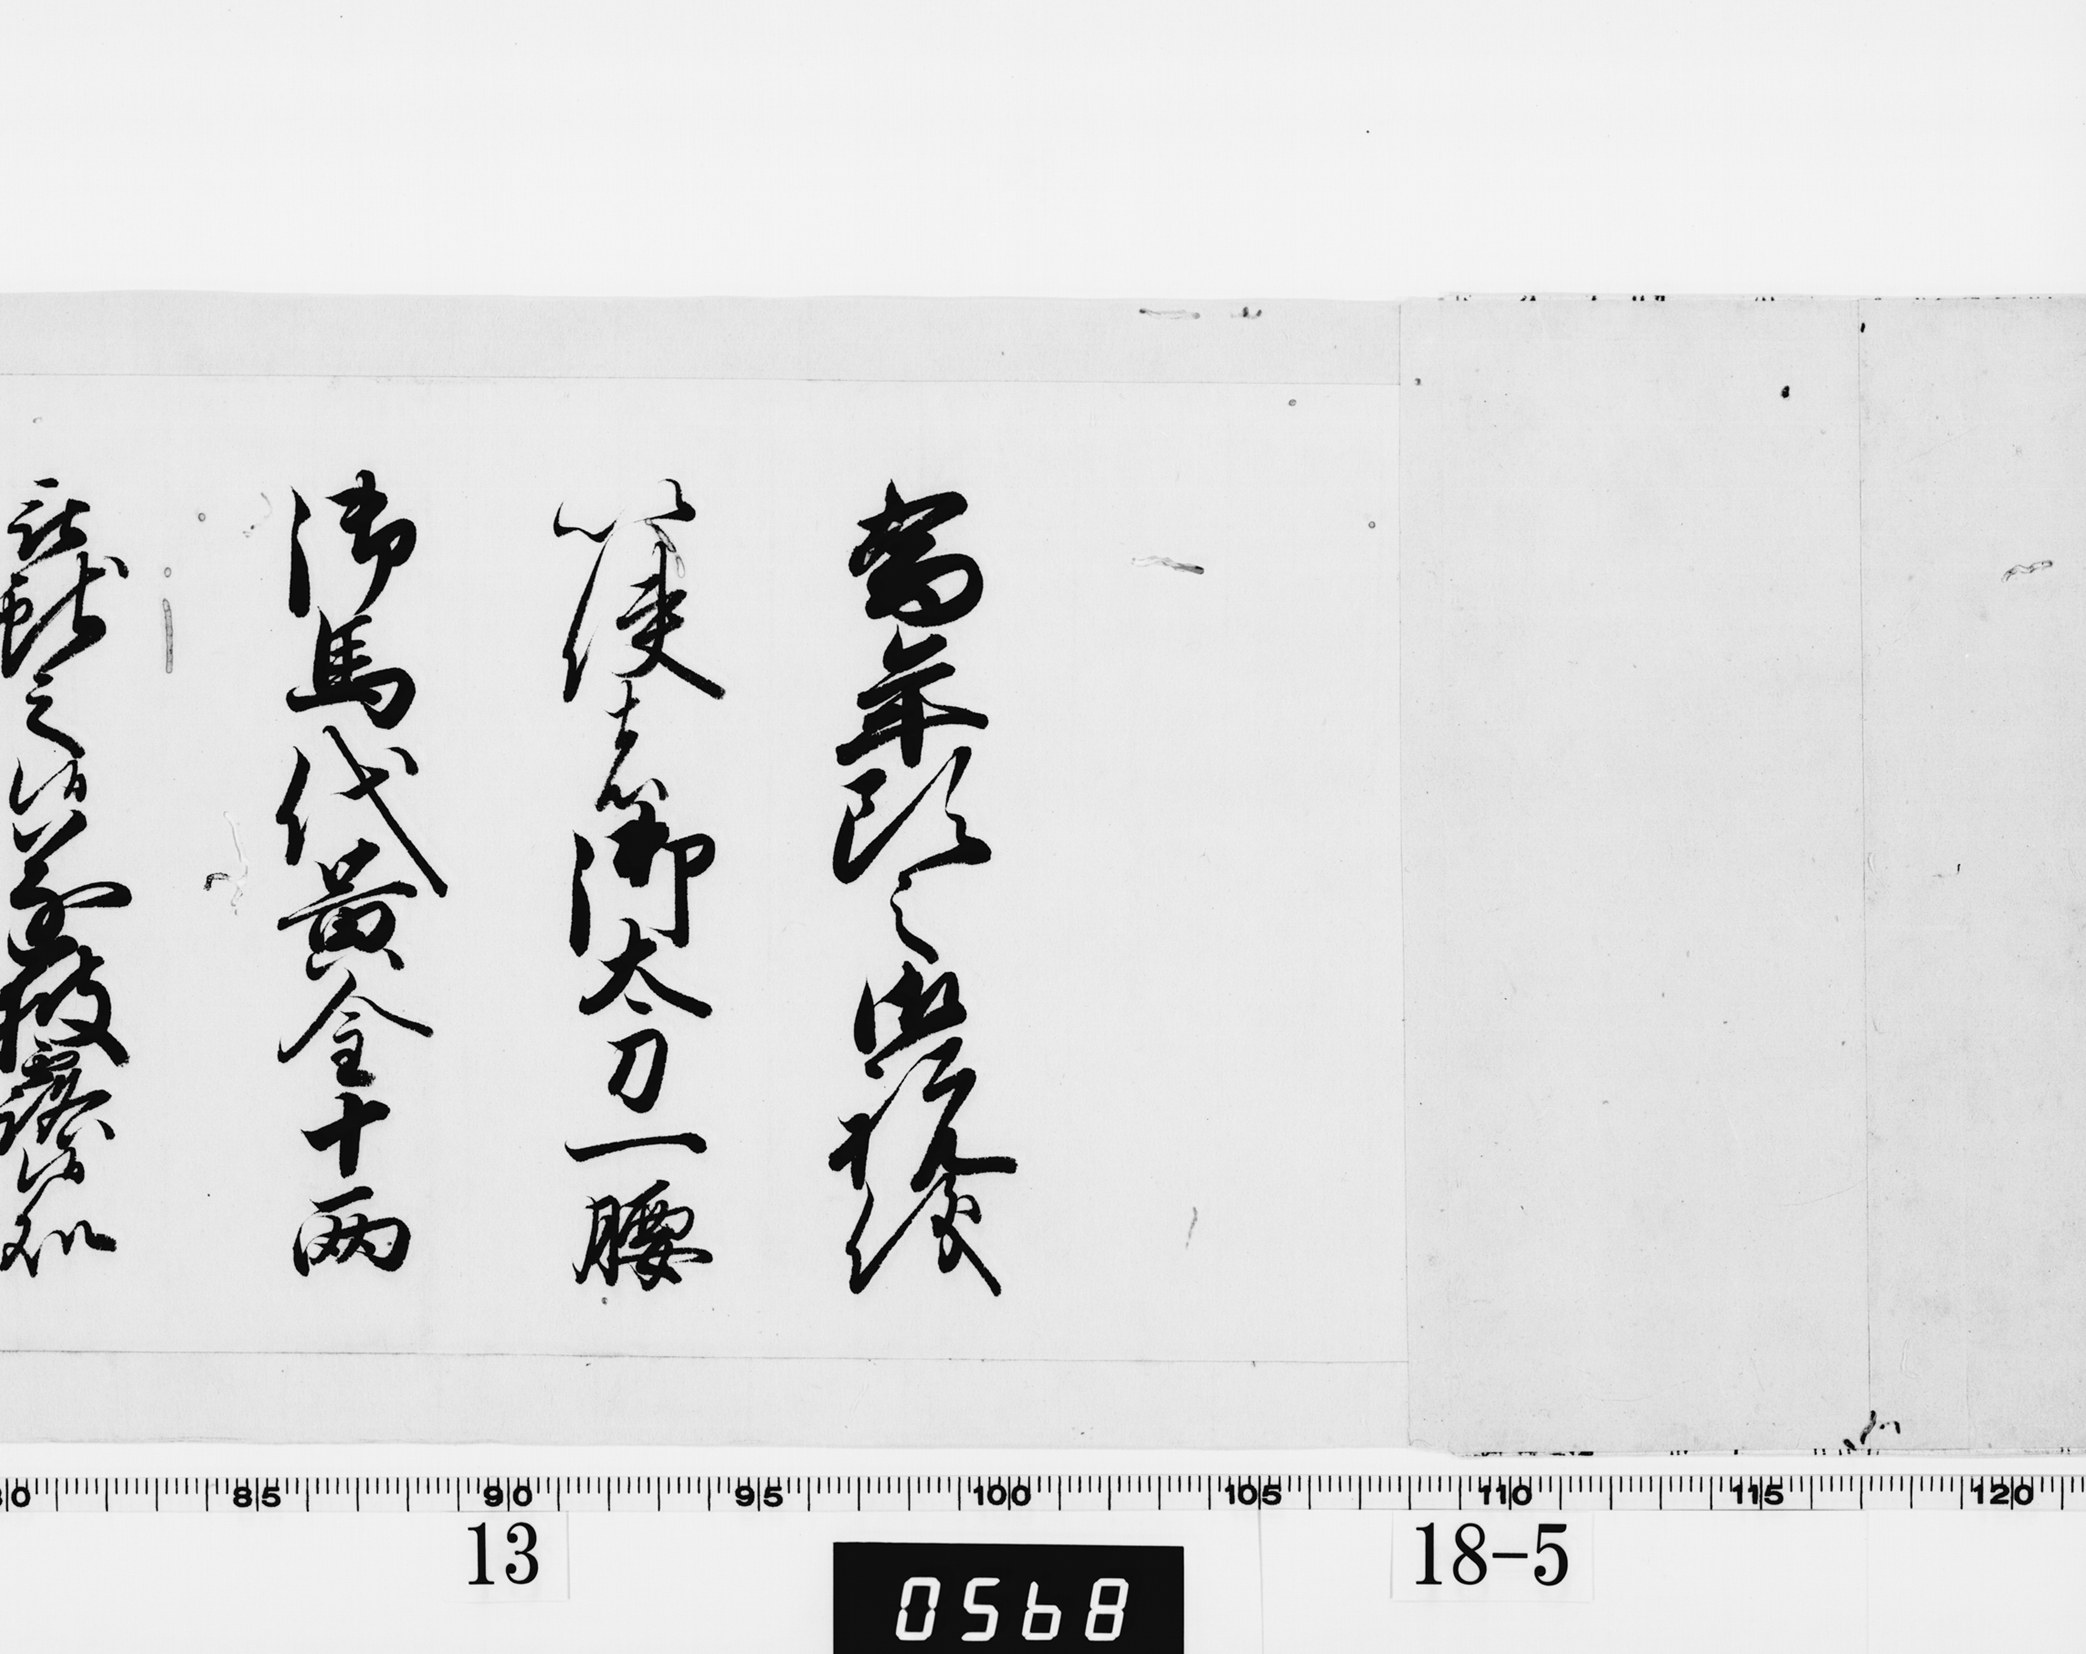 為年頭之御祝儀
以使者御太刀一腰
御馬代黄金十両
献之候
披露候処
80 85 90 95 100 105 110 115 120
13
18-5
0568